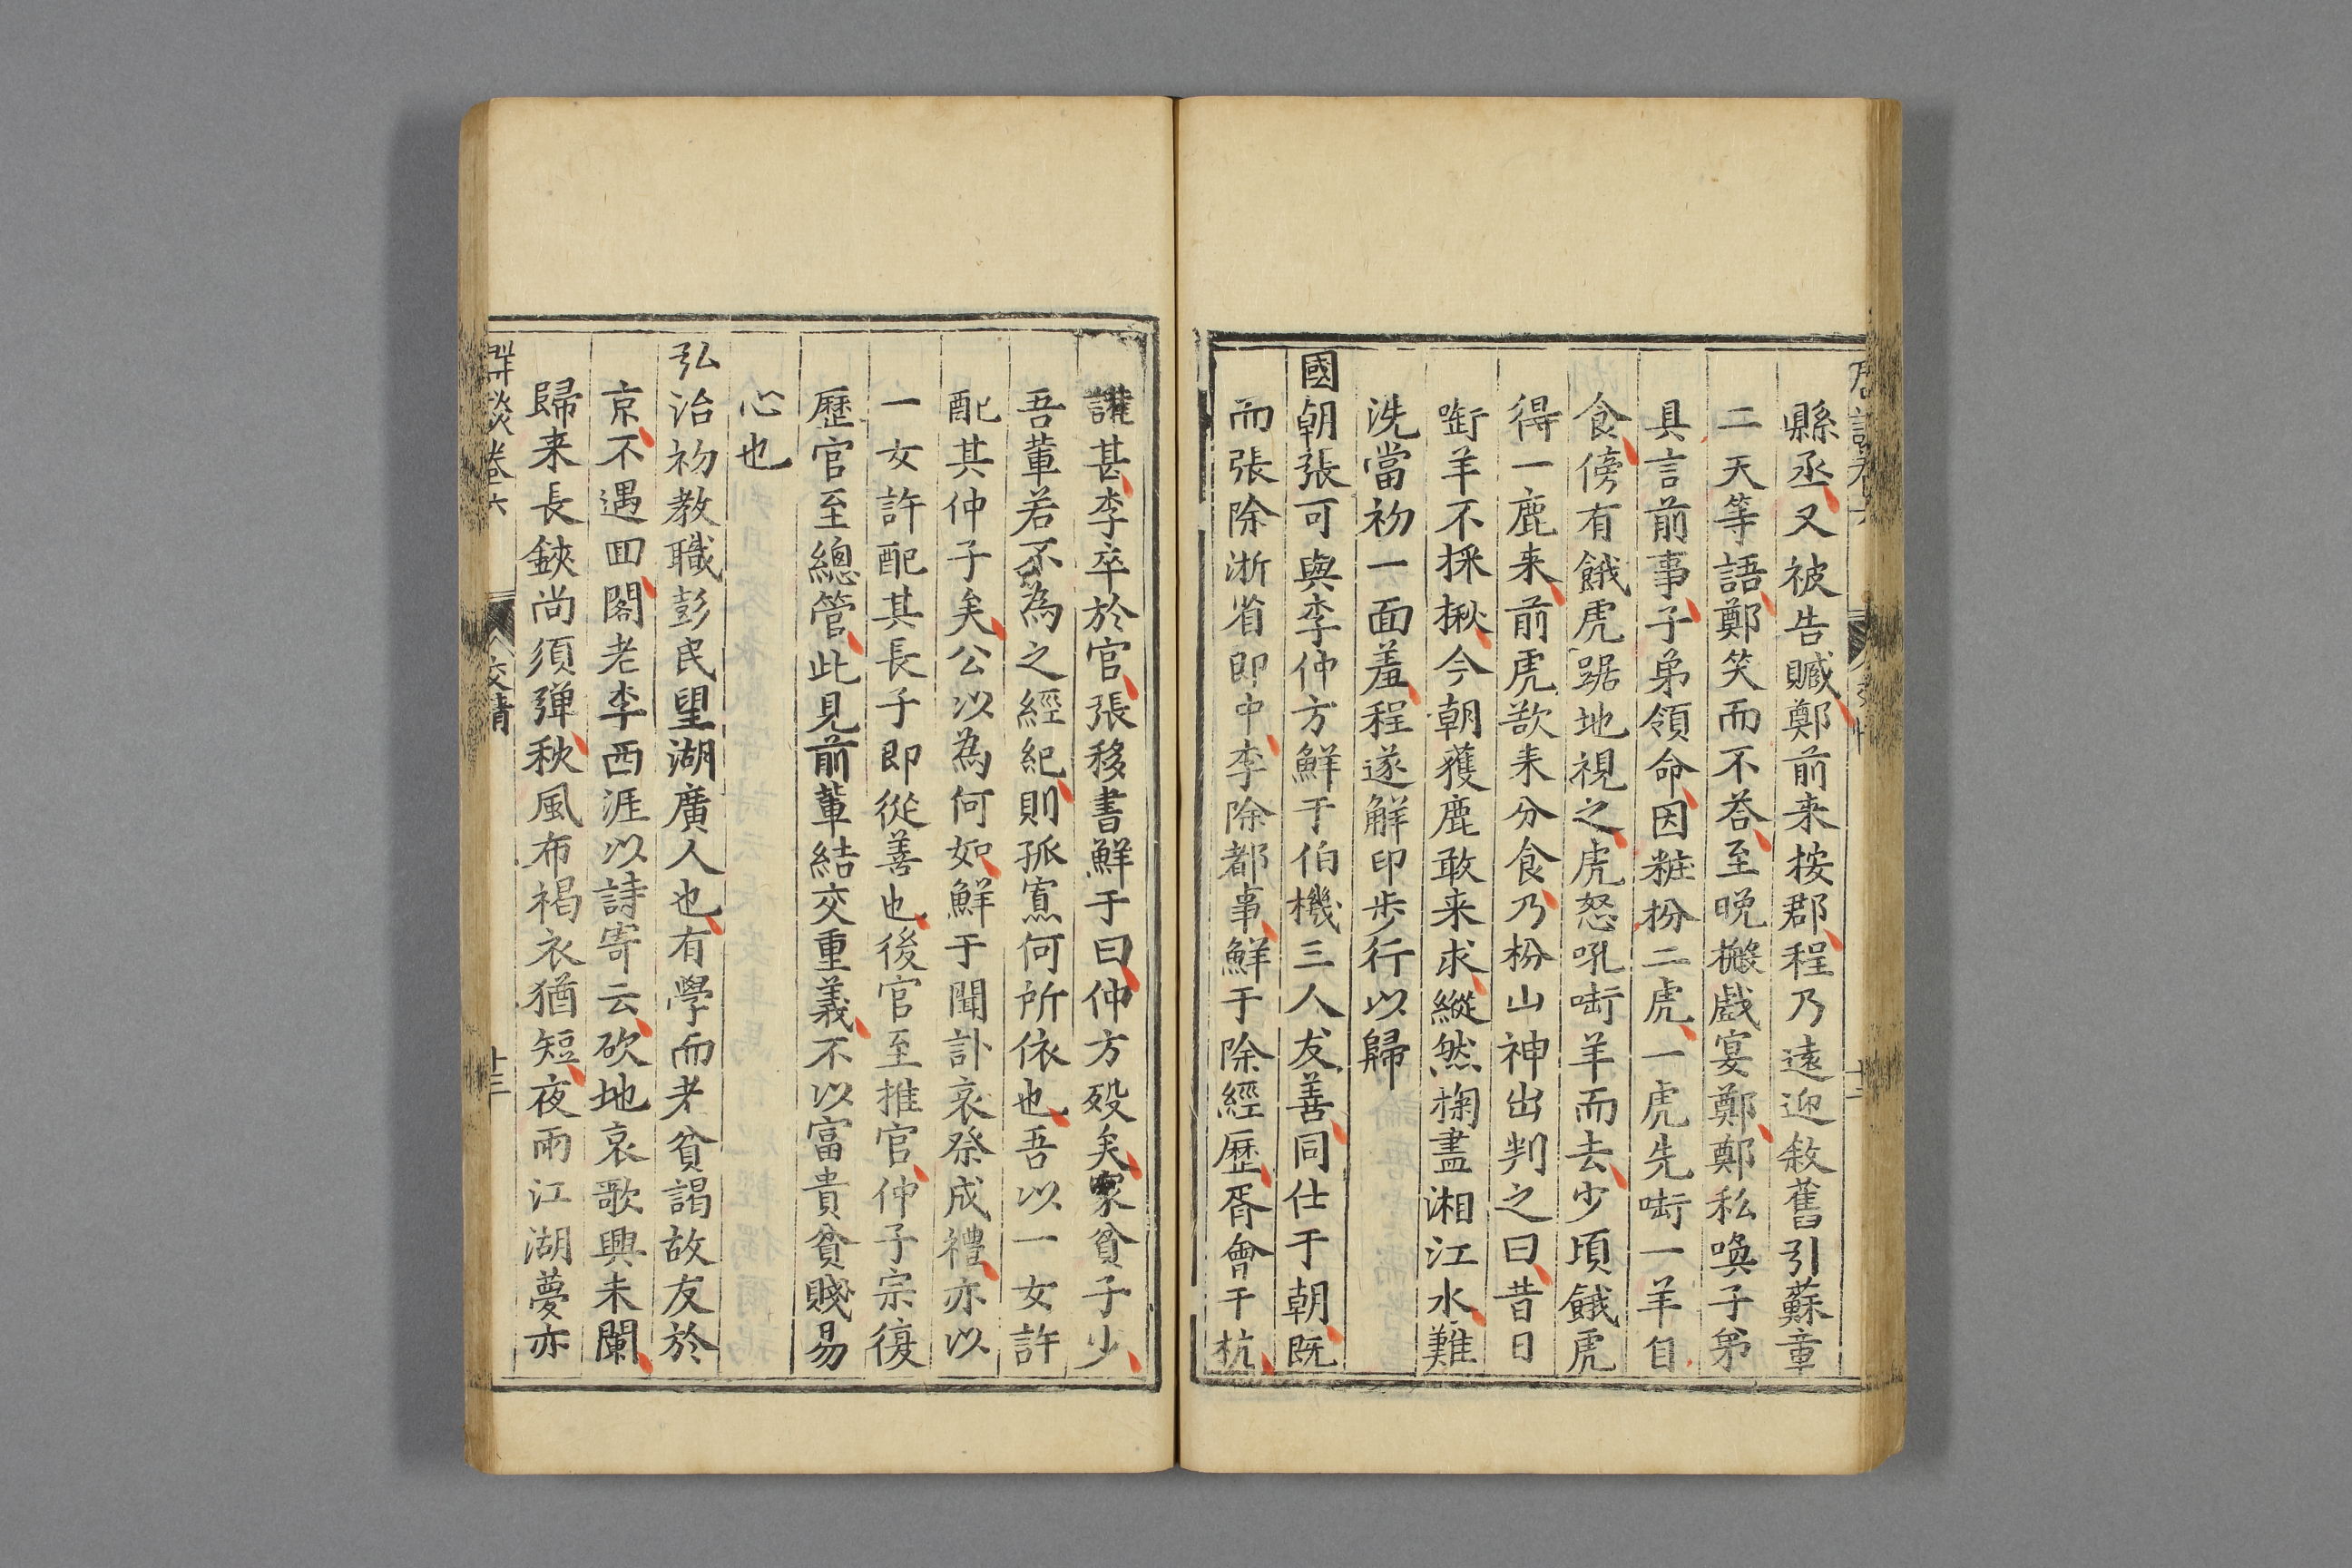 縣丞又被告贓鄭前来按郡程乃遠迎敘舊引蘇章
二天等語鄭笑而不荅至晩搬戲宴鄭鄭私喚子弟
具言前事子弟領命因粧扮二虎一虎先啣一羊自
食傍有餓虎踞地視之虎怒吼啣羊而去少頃餓虎
得一鹿来前虎欲来分食乃扮山神出判之曰昔日
啣羊不採揪今朝獲鹿敢来求縱然掬盡湘江水難
洗當初一面羞程遂解印步行以歸
國朝張可與李仲方鮮于伯機三人友善同仕于朝既
而張除浙省郎中李除都事鮮于除經歷胥會于杭
讙甚李卒於官張移書鮮于曰仲方殁矣家貧子少
吾軰若不為之經紀則孤寡何所依也吾以一女許
配其仲子矣公以為何如鮮于聞訃哀祭成禮亦以
一女許配其長子即從善也後官至推官仲子宗復
歷官至總管此見前軰結交重義不以富貴貧賤易
心也
弘治初教職彭民望湖廣人也有學而老貧謁故友於
京不遇囬閣老李西涯以詩寄云砍地哀歌興未闌
歸来長鋏尚須弹秋風布褐衣猶短夜雨江湖夢亦
群談卷六 交情 十三